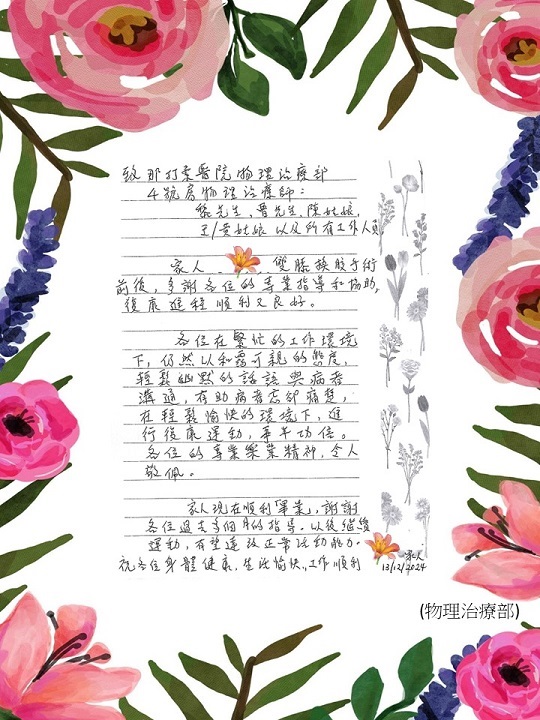 致那打素醫院物理治療部
4號房物理治療師：
黎先生，曹先生，陳姑娘，
王/黄姑娘 以及所有工作人員
家人 雙膝換骹手術
前後，多謝各位的專業指導和協助，
復康進程順利又良好。
各位在繁忙的工作環境
下，仍然以和靄可親的態度，
輕鬆幽默的話語與病者
溝通，有助病者忘卻痛楚，
在輕鬆愉快的環境下，進
行復康運動，事半功倍。
各位的專業樂業精神，令人
敬佩。
家人現在順利「畢業」，謝謝
各位過去多個月的指導。以後繼續
運動，有望達致正常活動能力。
祝各位身體健康，生活愉快，工作順利
家人
13/12/2024
(物理治療部)